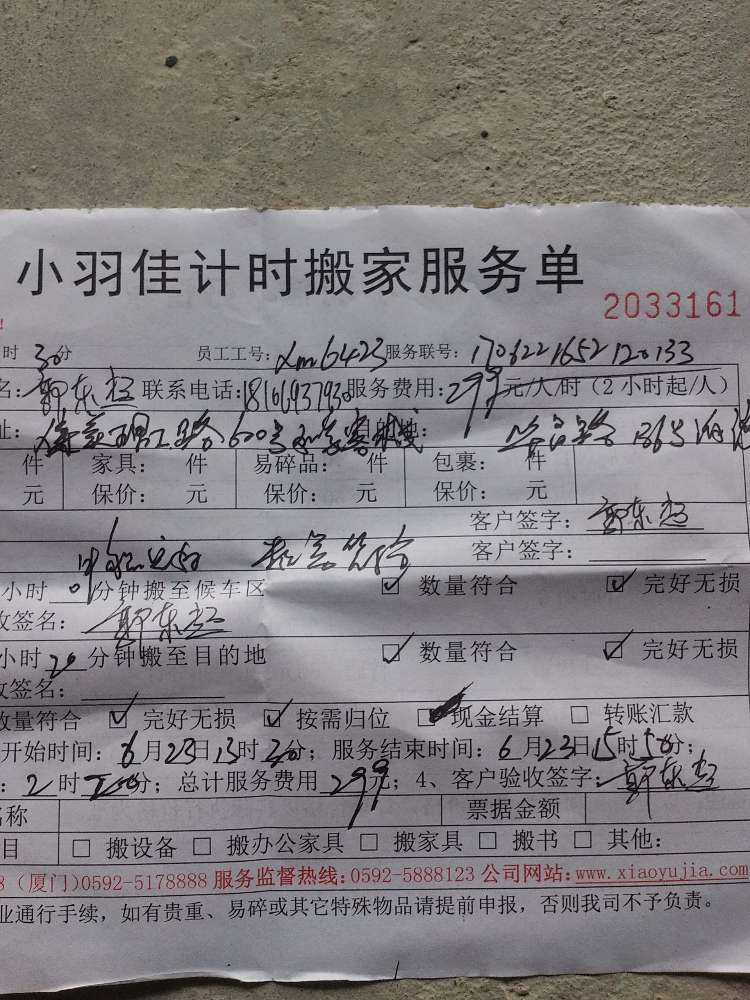 小羽佳计时搬家服务单
2033161
!
时30分 员工工号：xm6423 服务联号：1706221652120133
名：郭东超 联系电话：18106937930 服务费用：299元/人/时（2小时起/人）
址： 600号 目的地：
件 家具： 件 易碎品： 件 包裹： 件
元 保价： 元 保价： 元 保价： 元
客户签字：郭东超
客户签字：
小时 分钟搬至候车区 ☑ 数量符合 ☑ 完好无损
收签名：郭东超
小时20分钟搬至目的地 ☑ 数量符合 ☑ 完好无损
收签名：
数量符合 ☑ 完好无损 ☑ 按需归位 现金结算 □ 转账汇款
开始时间：6月23日13时30分；服务结束时间：6月23日15时50分；
：2时20分；总计服务费用299元；4、客户验收签字：郭东超
名称 票据金额
目 □ 搬设备 □ 搬办公家具 □ 搬家具 □ 搬书 □ 其他：
8（厦门）0592-5178888 服务监督热线：0592-5888123 公司网站：www.xiaoyujia.com
业通行手续，如有贵重、易碎或其它特殊物品请提前申报，否则我司不予负责。